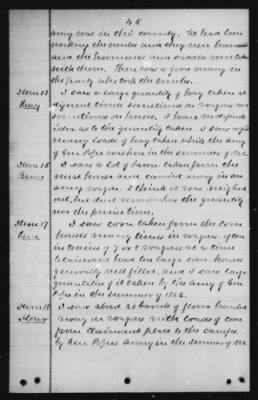 45
army was in this county. He had been
working the mules and they were harnessed
and the harnesses and saddles were taken
with them. There was a good many in
the party who took the mules.
Item 13 I saw a large quantity of hay taken at
Hay different times sometimes on wagons and
sometimes on horses. I have no definite
idea as to the quantity taken. I saw a good
many loads of hay taken while the army of
Gen Popes was here in the summer of 1862.
Item 15 I saw a lot of bacon taken from the
Bacon meat house and carried away in an
army wagon. I think it was weighed
out, but dont remember the quantity
nor the precise time.
Item 17 I saw corn taken from the corn
Corn houses many times in wagons, often
in trains of 7 or 8 wagons at a time
Claimant had two large corn houses
generally well filled, and I saw large
quantities of it taken by the army of Gen
Pope in the summer of 1862.
Item 18 I saw about 20 barrels of flour hauled
Flour away in wagons with loads of corn
from Claimants place to the camps
by Gen Popes army in the summer of 1862